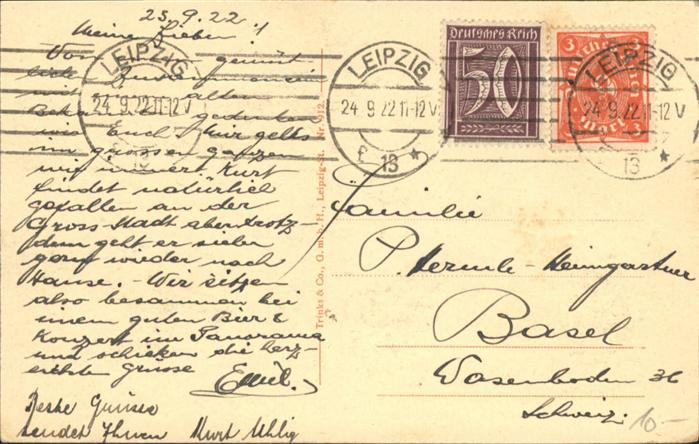 23.9.22
Meine Lieben!
Von
mit alten
gedenken
wir Euch. Hier gehts
im grossen ganzen
wie immer. Kurt
findet natürlich
gefallen an der
Gross-Stadt aber trotz-
dem geht er wieder
gern wieder nach
Hause. - Wir sitzen
also beisammen bei
einem guten Bier &
Konzert im Panorama
und schicken die herz-
lichsten Grüsse
Emil.
Beste Grüsse
sendet Ihnen Kurt Uhlig
Trinks & Co., G. m. b. H., Leipzig-St. Nr. 912.
LEIPZIG
24.9.22 11-12 V
LEIPZIG
24.9.22 11-12 V
13
Deutsches Reich
50
Deutsches Reich
3 3
3 Mark 3
LEIPZIG
24.9.22 11-12 V
13
Familie
P. Heimgartner
Basel
Wasenboden 36
Schweiz.
10-